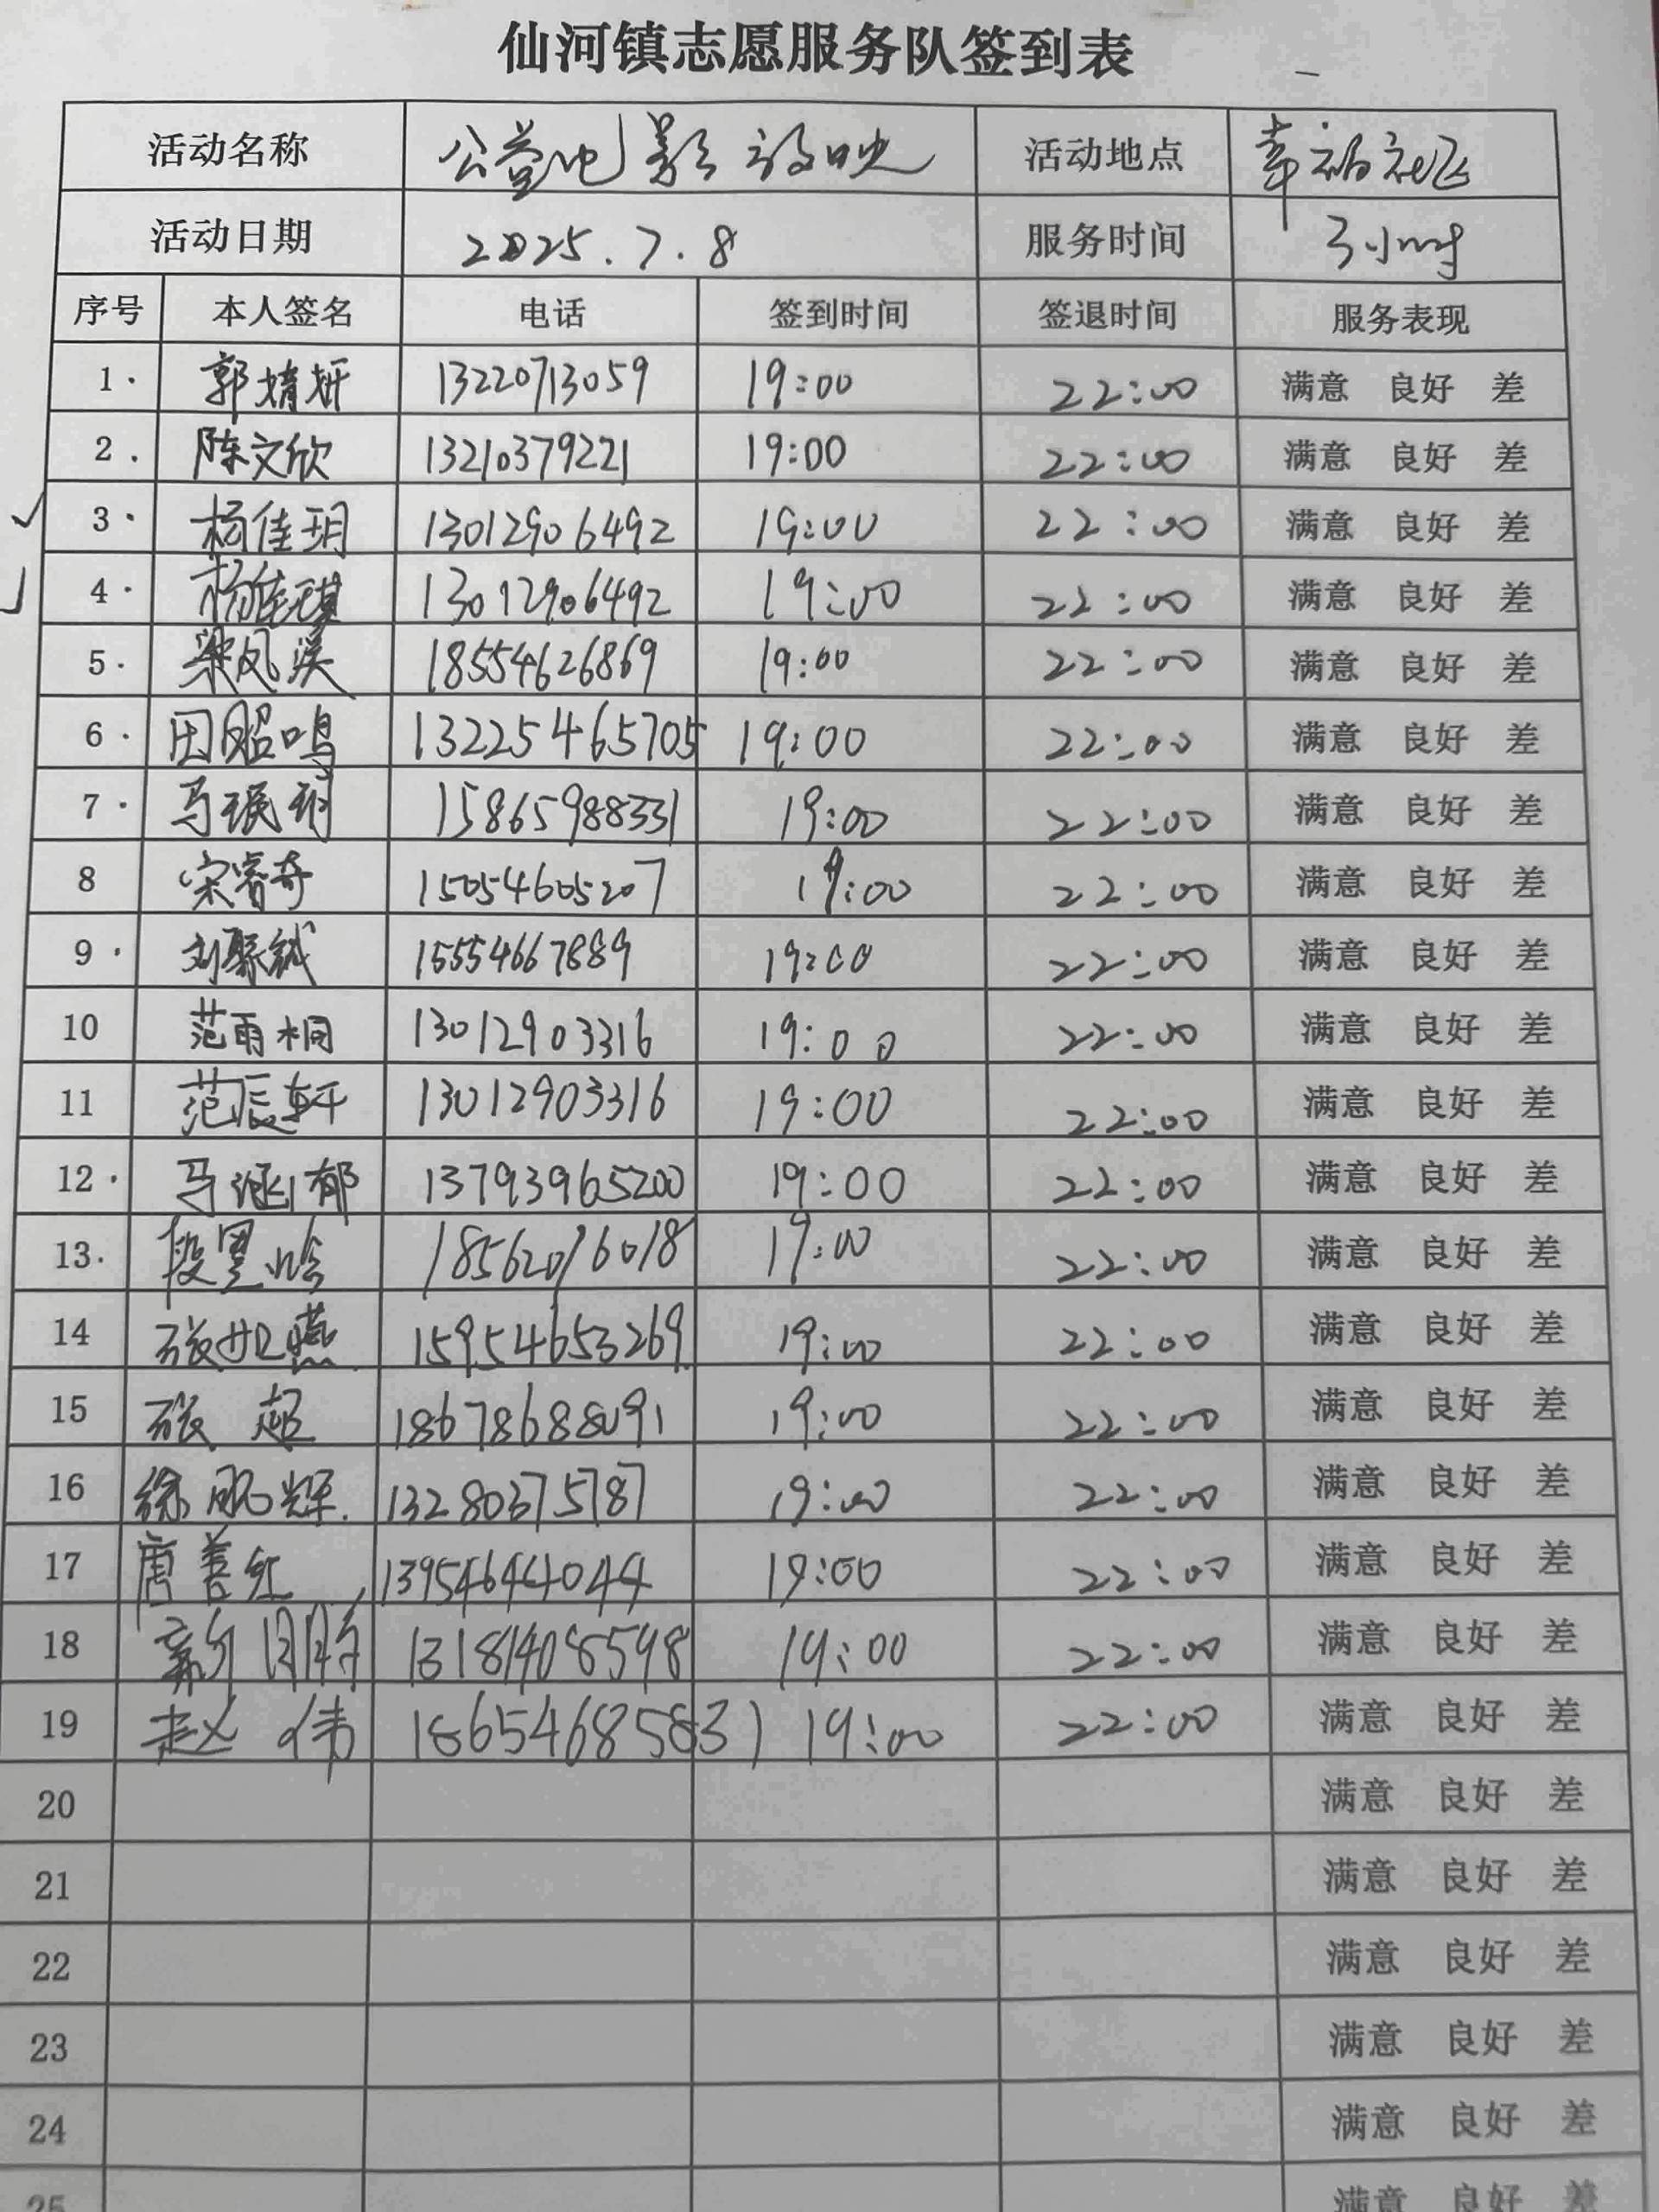 仙河镇志愿服务队签到表
活动名称 公益电影放映 活动地点 幸福社区
活动日期 2025.7.8 服务时间 3小时
序号 本人签名 电话 签到时间 签退时间 服务表现
1. 郭婧妍 13220713059 19:00 22:00 满意 良好 差
2. 陈文欣 13210379221 19:00 22:00 满意 良好 差
3. 杨佳玥 13012906492 19:00 22:00 满意 良好 差
4. 杨佳琪 13012906492 19:00 22:00 满意 良好 差
5. 梁凤溪 18554626869 19:00 22:00 满意 良好 差
6. 田昭鸣 13225465705 19:00 22:00 满意 良好 差
7. 马珉玥 15865988331 19:00 22:00 满意 良好 差
8 宋睿奇 15054605207 19:00 22:00 满意 良好 差
9. 15554667889 19:00 22:00 满意 良好 差
10 范雨桐 13012903316 19:00 22:00 满意 良好 差
11 范辰轩 13012903316 19:00 22:00 满意 良好 差
12. 马涵郁 13793965200 19:00 22:00 满意 良好 差
13. 18562016018 19:00 22:00 满意 良好 差
14 15954653269 19:00 22:00 满意 良好 差
15 张超 18678688091 19:00 22:00 满意 良好 差
16 徐鹏辉 13280375787 19:00 22:00 满意 良好 差
17 唐善红 13954644044 19:00 22:00 满意 良好 差
18 13181408598 19:00 22:00 满意 良好 差
19 赵伟 18654685831 19:00 22:00 满意 良好 差
20 满意 良好 差
21 满意 良好 差
22 满意 良好 差
23 满意 良好 差
24 满意 良好 差
25 满意 良好 差